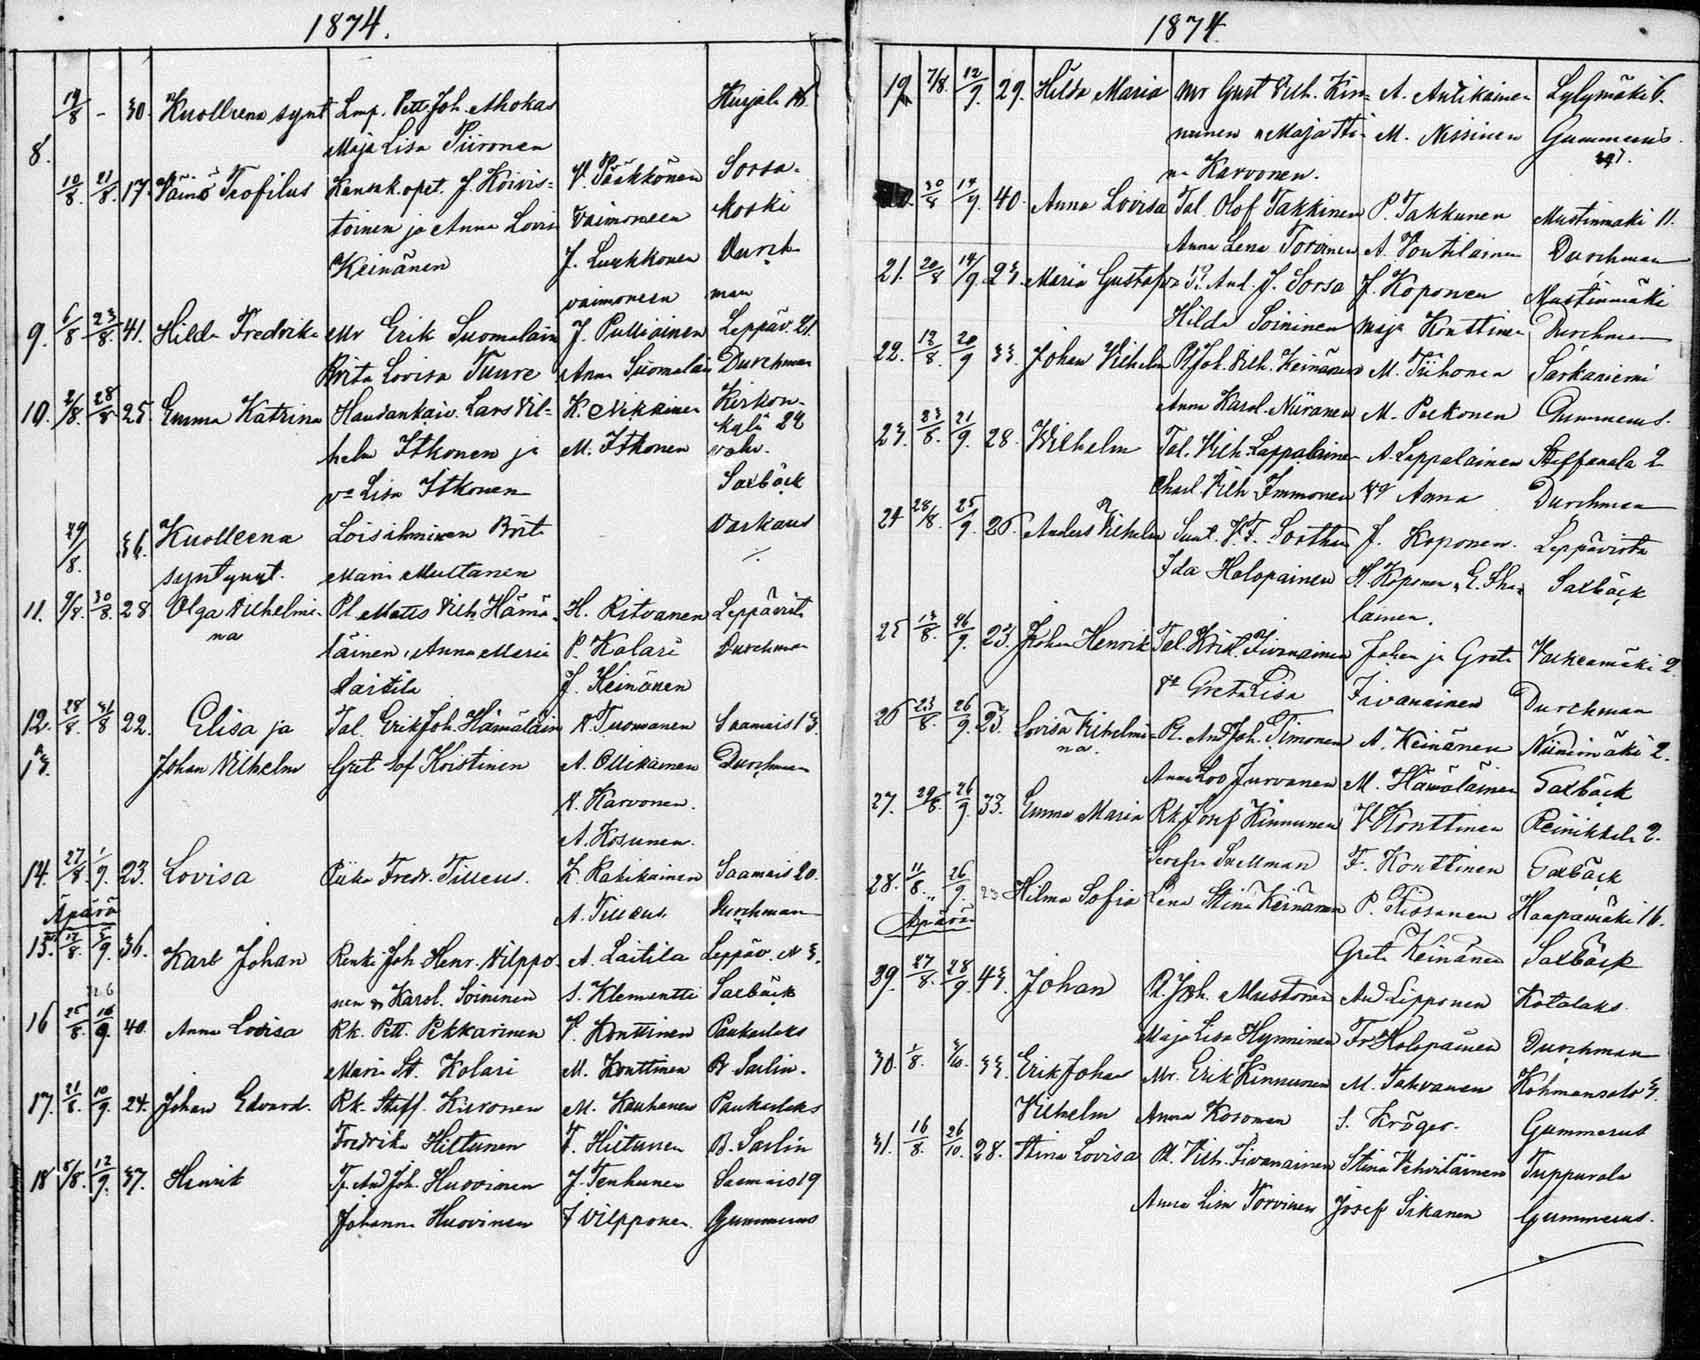 1874.
19/8 - 30. Kuollena synt Lmp. Pett Joh. Ahokas
Maja Lisa Tiironen
8. 10/8. 21/8. 17. Väinö Teofilus Kansak. opet. J. Koivis= V. Pääkkönen Sorsa-
toinen ja Anna Lovis vaimoneen koski
Keinänen J. Luukkonen Durch
vaimoneen man
9. 6/8 23/8. 41. Hilda Fredrika Mr Erik Suomalain J. Pulliainen Leppäv. 21
Brita Lovisa Tuure Anna Suomalain Durchman
10. 2/8. 28/8 25. Emma Katrina Haudankaiv. Lars Vil= K. Nikkinen Kirkon-
helm Itkonen ja M. Itkonen kylä 24
va Lisa Itkonen Saxbäck
29/8. 36. Kuolleena Loisihminen Brit Varkaus
syntynyt. Maria Multanen
11. 9/8. 30/8. 28 Olga Vilhelmi- Pl. Matts Vilh. Hämä- H. Ritvanen Leppävirt
na läinen, Anna Maria P. Kolari Durchman
Laitila J. Keinänen
12. 28/8. 31/8 22. Elisa ja Tal. Erik Joh. Hämäläin V. Tuomanen Saamais 13.
13. Johan Vilhelm Gret Sof Koistinen A. Ollikainen Durchman
V. Karvonen.
A. Kosunen.
14. 27/8. 1/9. 23. Lovisa Piika Fredr. Tilleus. K. Ratikainen Saamais 20.
Äpärä A. Tilleus Durchman
15. 12/8. 5/9. 36. Karl Johan Renki Joh. Henr. Vilppo- A. Laitila Leppäv. N 3.
nen Karol. Soininen S. Klementti Saxbäck
16 25/8. 10/9. 40. Anna Lovisa Rk. Pett. Pekkarinen V. Konttinen Paukarlaks
Maria St. Kolari M. Konttinen B Sarlin.
17. 21/8. 10/9. 24. Johan Edvard. Rk. Staff. Kuronen M. Kauhanen Paukarlaks
Fredrika Hiltunen F. Hiltunen B. Sarlin
18 5/8. 12/9. 37. Henrik And Joh. Huovinen J. Tenhunen Saamais 19
Johanna Huovinen J Vilpponen Gummerus
1874.
19 7/8. 12/9. 29. Hilda Maria Mr Gust Vilh. Kin= A. Antikainen Lylymäki 6.
nunen Maja Sti- M. Nissinen Gummerus.
na Karvonen.
30/8 14/9. 40. Anna Lovisa Tal. Olof Takkinen P. Takkunen Mustinmäki 11.
Anna Lena Torvinen A. Voutilainen Durchman
21. 20/8 14/9. 23. Maria Gustafva And. J. Sorsa J. Koponen Mustinmäki
Hilda Soininen Maja Konttinen Durchman
22. 12/8. 20/9 33. Johan Vilhelm Joh. Vilh. Keinänen M. Tiihonen Sarkaniemi
Anna Karol. Niiranen M. Paekonen Gummerus.
23. 21/9. 28. Vilhelm Tal. Vilh. Lappalainen A. Lappalainen Steffanala 2
Charl. Vilh. Immonen Anna Durchman
24 28/8. 25/9. 26. Anders Vilhelm J. Koponen. Leppävirta
Ida Holopainen Saxbäck
lainen.
25 13/8. 26/9. 23. Johan Henrik Tal. Krist. Tivanainen Johan ja Greta Valkeamäki 2.
Greta Lisa Tivanainen Durchman
26 23/8. 26/9 23. Lovisa Vilhelmi= And Joh. Timonen A. Keinänen Niinimäki 2.
na. Anna Lov Jurvanen M. Hämäläinen Saxbäck
27. 29/8. 26/9. 33. Emma Maria Rk Josef Kinnunen V. Konttinen Reinikkala 2.
Josefin Snellman F. Konttinen Saxbäck
28. 11/8. 26/9. 23 Hilma Sofia Lena Stina Keinänen P. Tissanen Haapamäki 16.
Äpärä Greta Keinänen Saxbäck
29. 27/8. 28/9. 43. Johan Joh. Mustonen And Lipponen Kotalaks.
Maja Lisa Hynninen Fr Holopainen Durchman
30. 1/8. 3/10. 33. Erik Johan Mr. Erik Kinnunen M. Tahvanen Kohmansalo 3.
Vilhelm Anna Kosonen S. Kröger. Gummerus
31. 16/8. 26/10. 28. Stina Lovisa Vilh. Tivanainen Stina Vehviläinen Tuppurala
Anna Lisa Torvinen Josef Sikanen Gummerus.